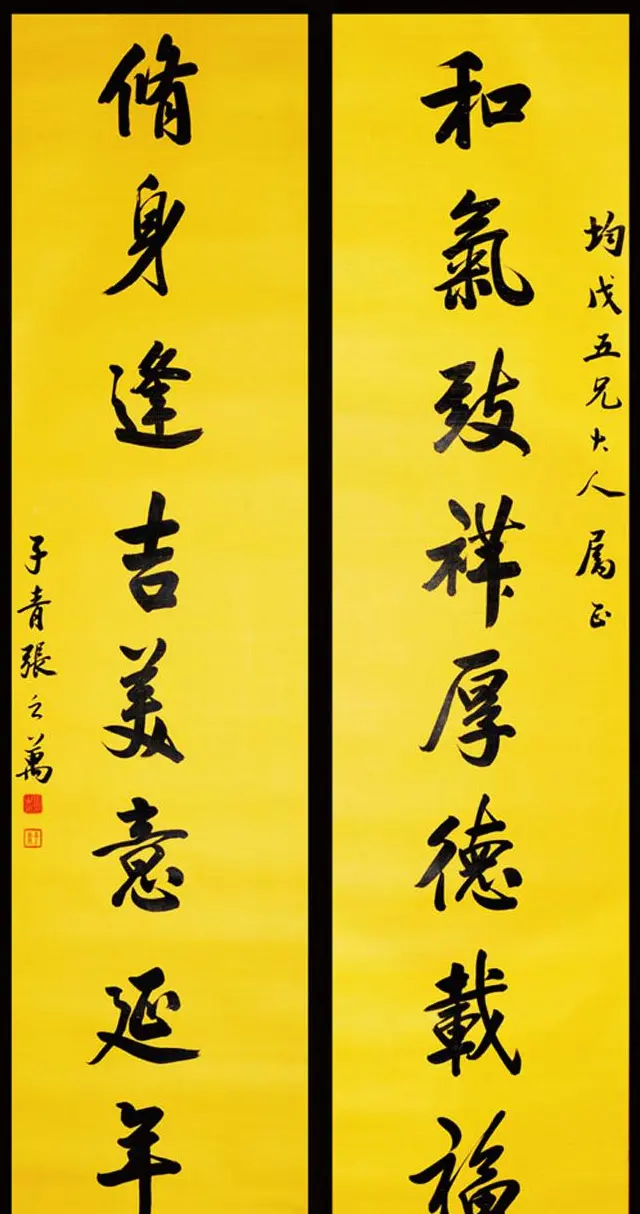 均戊五兄大人属正
和氣致祥厚德載福
脩身逢吉美意延年
子青張之萬